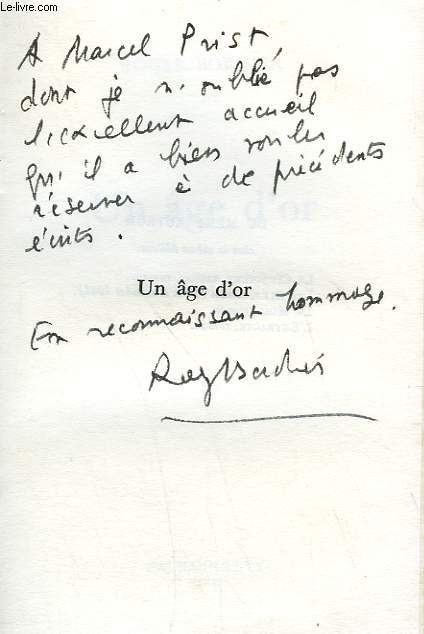 Le-livre.com
A Marcel Prist,
dont je n'oublie pas
l'excellent accueil
qu'il a bien voulu
réserver à de précédents
écrits.
Un âge d'or
En reconnaissant hommage.